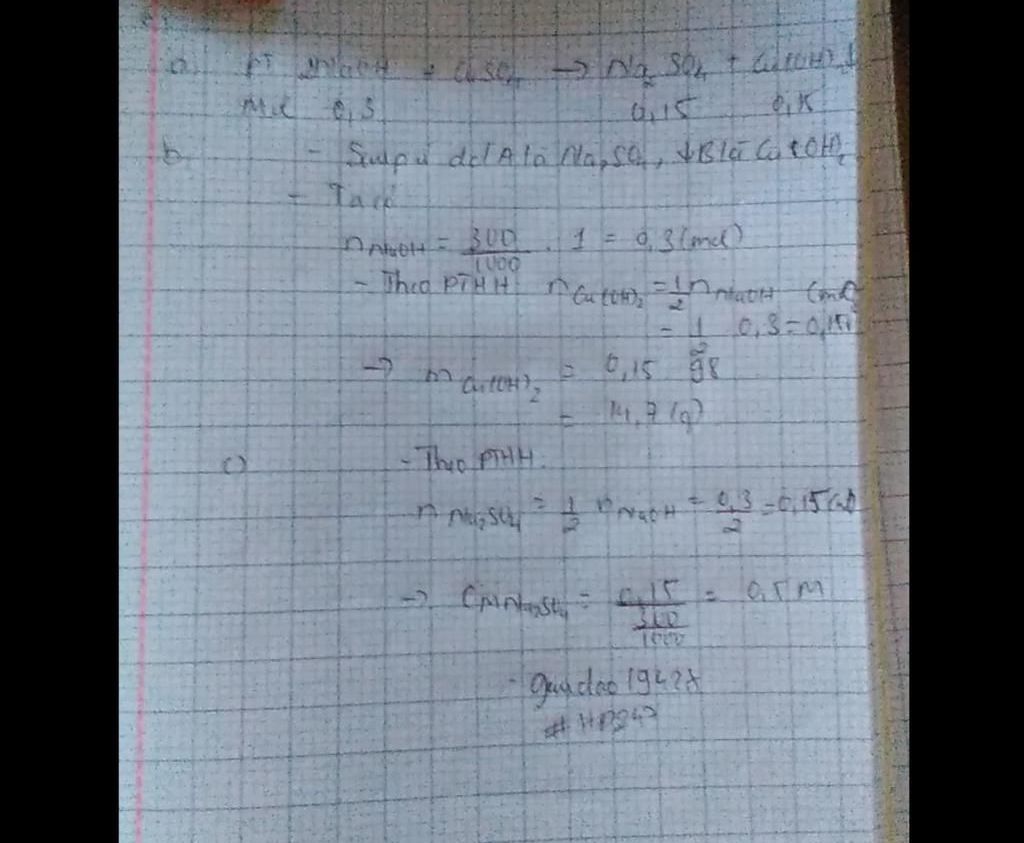 a. PT 2NaOH + CuSO4 → Na2SO4 + Cu(OH)2↓
Mol 0,3 0,15 0,15
b - Suy ra dd A là Na2SO4, ↓B là Cu(OH)2
- Ta có
nNaOH = 300/1000 . 1 = 0,3 (mol)
- Theo PTHH nCu(OH)2 = 1/2 nNaOH (mol)
= 1/2 0,3 = 0,15
→ mCu(OH)2 = 0,15 98
= 14,7 (g)
c) - Theo PTHH.
nNa2SO4 = 1/2 nNaOH = 0,3/2 = 0,15
→ CMNa2SO4 = 0,15/300/1000 = 0,5M